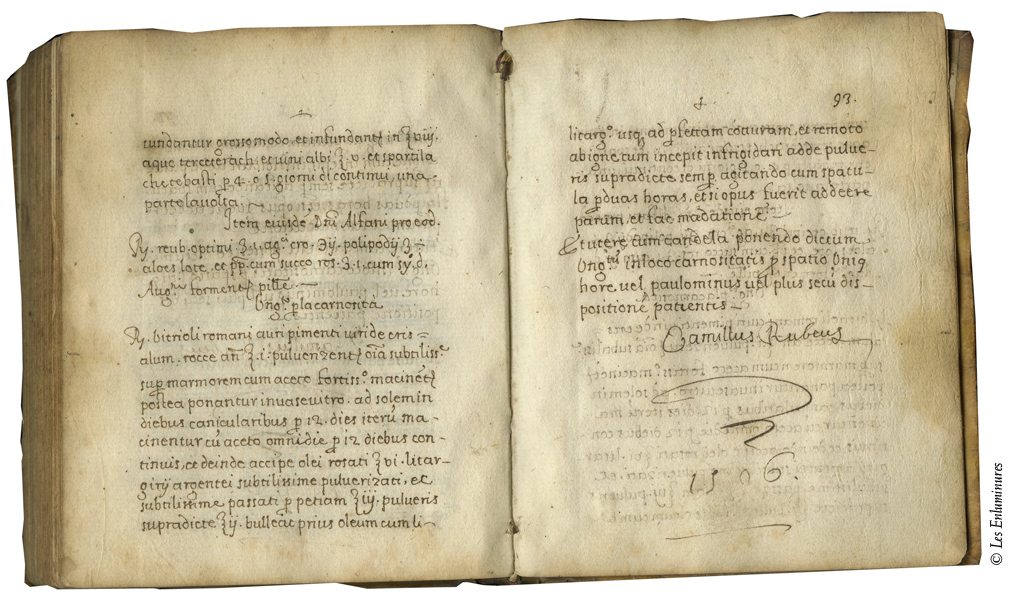 tundantur grossomodo, et infundantr in ℥ viij.
aque terceterach, et vini albi ℥ v. et spartila
che te basti p 4. o 5. giorni di continui, una
parto la volta.
Item eiusdē Dnī Alfani pro eod.
℞. reub. optimi ʒ.1. agci cro. Ʒij. polipodij ʒ
aloes lote, et pp. cum succo ros. ʒ.1. cum sy. d.
Augri formentr pille.
Ungtū p la carnosità
℞. vitrioli romani auri pimenti viride eris
alum. rocce an̄ ʒ.i. pulverizentr oīa subtiliss
sup marmorem cum aceto fortiss.o macinetr
postea ponantur in vase vitro. ad solem in
diebus canicularibus p 12. dies iterū ma-
cinentur cū aceto omni die p 12 diebus con-
tinuis, et deinde accipe olei rosati ℥ vi. litar-
girij argentei subtilissime pulverizati, et
subtilissime passati p petiam ℥ iij. pulveris
supradicte ℥ ij. bulleat prius oleum cum li-
93.
litargo. usq ad pfettam cotturam, et remoto
ab igne, cum incepit infrigidari adde pulve-
ris supradicte semp agitando cum spatu-
la p duas horas, et si opus fuerit addecere
parum, et fac madationē
Et utere cum candela ponendo dictum
Ungtū in loco carnositatis p spatio Uniq
hore vel paulominus vel plus secū dis-
positionē patientis
Camillus Rubeus
1506.
© Les Enluminures